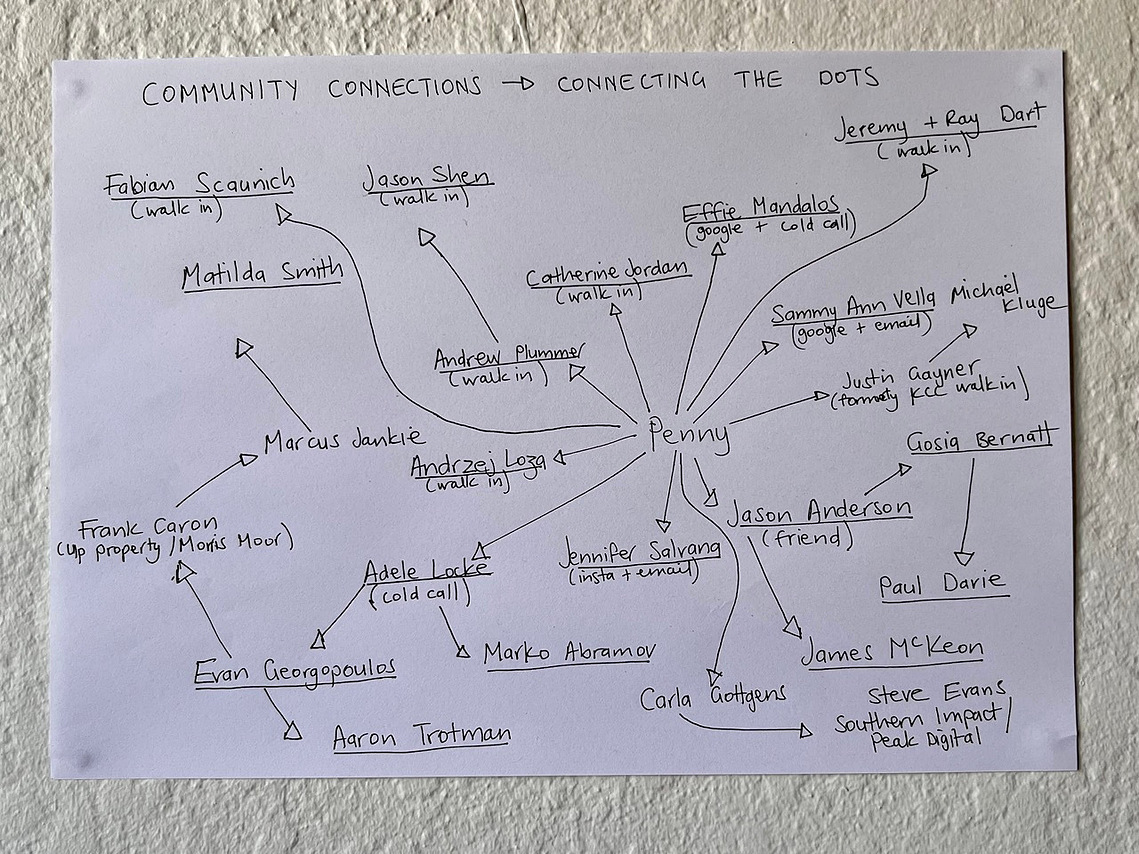 COMMUNITY CONNECTIONS → CONNECTING THE DOTS
Jeremy + Ray Dart
(walk in)
Fabian Scaunich
(walk in)
Jason Shen
(walk in)
Effie Mandalos
(google + cold call)
Matilda Smith
Catherine Jordan
(walk in)
Sammy Ann Vella
(google + email)
Michael
Kluge
Andrew Plummer
(walk in)
Justin Gayner
(formerly KCC walk in)
Marcus Jankie
Penny
Gosia Bernatt
Andrzej Loza
(walk in)
Frank Caron
(Up property / Morris Moor)
Jason Anderson
(friend)
Jennifer Salvana
(insta + email)
Adele Locke
(cold call)
Paul Darie
Evan Georgopoulos
Marko Abramov
James McKeon
Carla Gottgens
Steve Evans
Southern Impact /
Peak Digital
Aaron Trotman